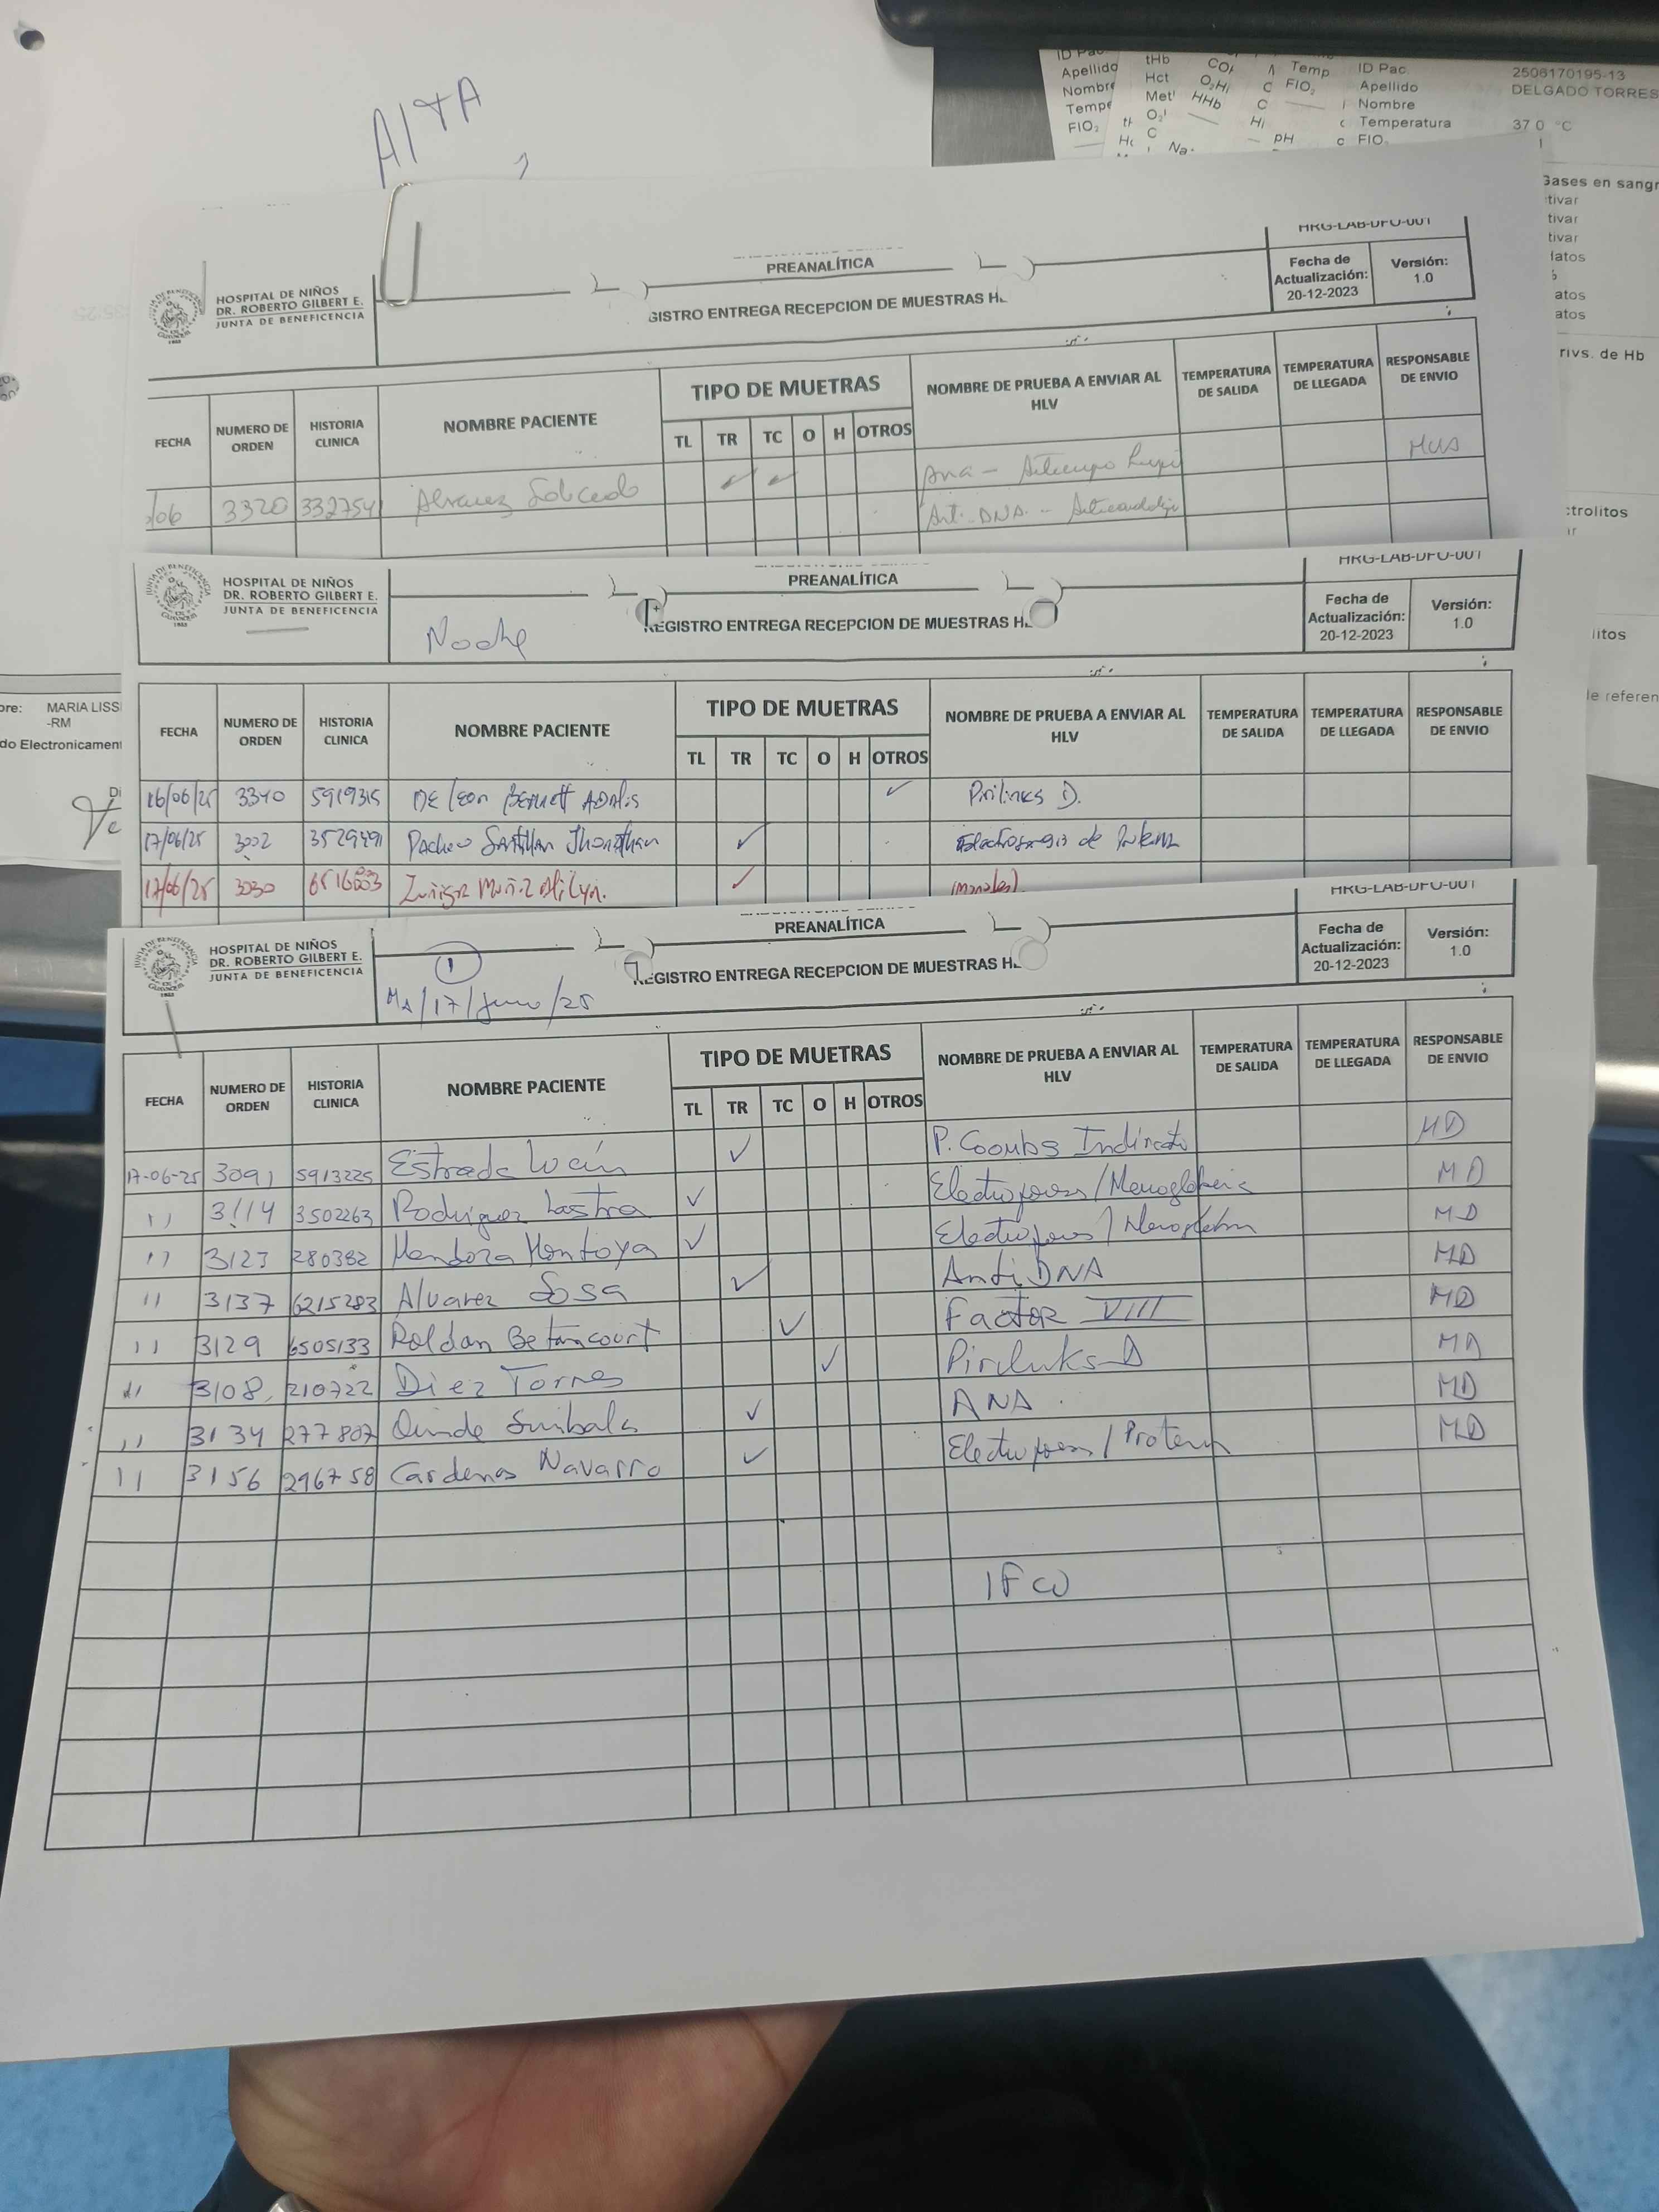 AltA
ID Pac.
Apellido
Nombre
Tempe
FIO₂
tHb
Hct
Met
O₂
CO
O₂H
HHb
Na
Temp
FIO₂
pH
ID Pac. 2506170195-13
Apellido DELGADO TORRES
Nombre
Temperatura 37.0 °C
FIO
Gases en sangr
tivar
tivar
tivar
datos
atos
atos
rivs. de Hb
ctrolitos
ar
litos
le referen
HOSPITAL DE NIÑOS
DR. ROBERTO GILBERT E.
JUNTA DE BENEFICENCIA
PREANALÍTICA
GISTRO ENTREGA RECEPCION DE MUESTRAS HL
HRG-LAB-DFO-001
Fecha de Actualización: 20-12-2023
Versión: 1.0
FECHA NUMERO DE ORDEN HISTORIA CLINICA NOMBRE PACIENTE TIPO DE MUETRAS TL TR TC O H OTROS NOMBRE DE PRUEBA A ENVIAR AL HLV TEMPERATURA DE SALIDA TEMPERATURA DE LLEGADA RESPONSABLE DE ENVIO
/06 3320 332754 Alvarez Salcedo ✓ ✓ Ana -
Anti-DNA -
HOSPITAL DE NIÑOS
DR. ROBERTO GILBERT E.
JUNTA DE BENEFICENCIA
Noche
PREANALÍTICA
REGISTRO ENTREGA RECEPCION DE MUESTRAS HL
HRG-LAB-DFO-001
Fecha de Actualización: 20-12-2023
Versión: 1.0
FECHA NUMERO DE ORDEN HISTORIA CLINICA NOMBRE PACIENTE TIPO DE MUETRAS TL TR TC O H OTROS NOMBRE DE PRUEBA A ENVIAR AL HLV TEMPERATURA DE SALIDA TEMPERATURA DE LLEGADA RESPONSABLE DE ENVIO
16/06/25 3340 5919315 De Leon ✓ D.
17/06/25 3002 3529491 Pacheco Santillan Jhonathan ✓ de
17/06/25 3030 Zuñiga Muñiz ✓ (manales)
ore: MARIA LISS
-RM
do Electronicament
HOSPITAL DE NIÑOS
DR. ROBERTO GILBERT E.
JUNTA DE BENEFICENCIA
1
Ma/17/Junio/25
PREANALÍTICA
REGISTRO ENTREGA RECEPCION DE MUESTRAS HL
HRG-LAB-DFO-001
Fecha de Actualización: 20-12-2023
Versión: 1.0
FECHA NUMERO DE ORDEN HISTORIA CLINICA NOMBRE PACIENTE TIPO DE MUETRAS TL TR TC O H OTROS NOMBRE DE PRUEBA A ENVIAR AL HLV TEMPERATURA DE SALIDA TEMPERATURA DE LLEGADA RESPONSABLE DE ENVIO
17-06-25 3091 5913225 Estrada Lucin ✓ P. Coombs Indirecto MD
11 3114 3502263 Rodriguez Lastra ✓ MD
11 3123 280382 Mendoza Montoya ✓ MD
11 3137 6215283 Alvarez Sosa ✓ Anti DNA MD
11 3129 6505133 Roldan Betancourt ✓ Factor VIII MD
11 3108 210722 Diez Torres ✓ Pirilinks-D MD
11 3134 277807 Quinde ✓ ANA MD
11 3156 296758 Cardenas Navarro ✓ MD